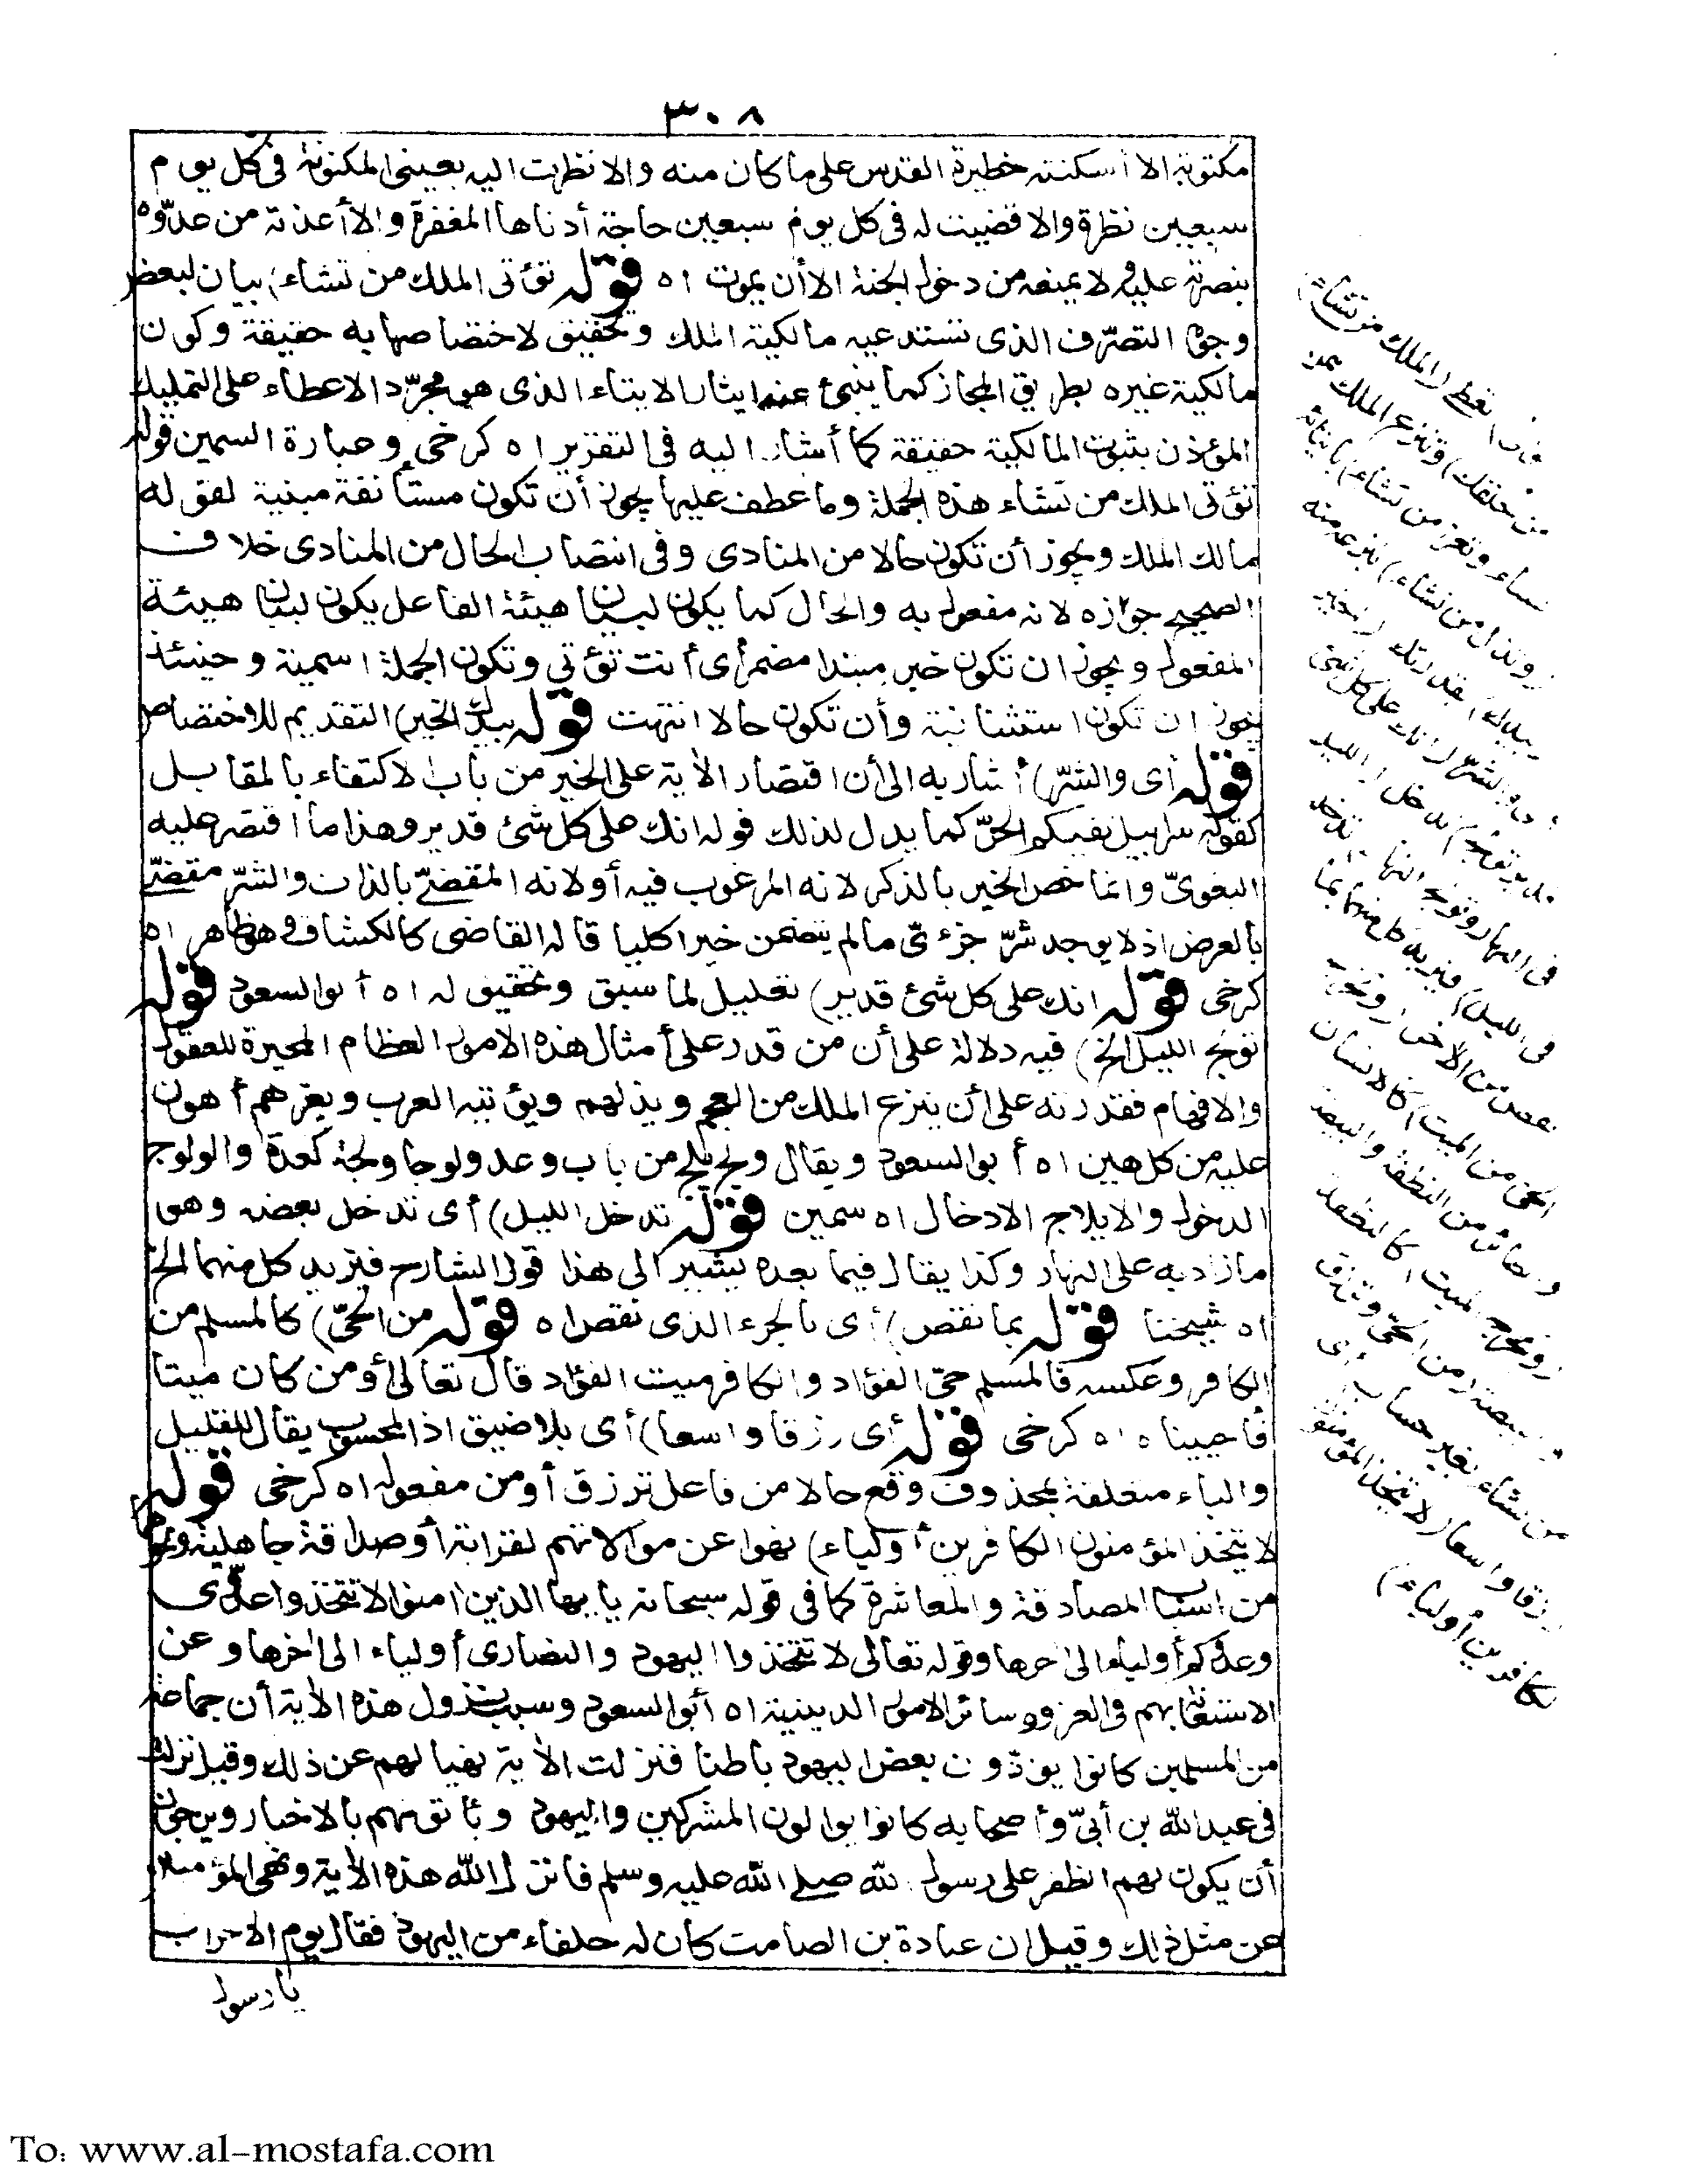 ٣٠٨
مكتوبة الا أسكنته حظيرة القدس على ما كان منه والا نظرت اليه بعيني المكنونة في كل يوم
سبعين نظرة والا قضيت له في كل يوم سبعين حاجة أدناها المغفرة والا أعذته من عدوّه
بنصرته عليه ولا يمنعه من دخول الجنة الا أن يموت اه قوله تؤتى الملك من تشاء) بيان لبعض
وجوه التصرّف الذى تستدعيه مالكية الملك وتحقيق لاختصاصها به حقيقة وكون
مالكية غيره بطريق المجاز كما ينبئ عنه ايثار الايتاء الذى هو مجرّد الاعطاء على التمليك
المؤذن بثبوت المالكية حقيقة كما أشار اليه في التقرير اه كرخى وعبارة السمين قوله
تؤتى الملك من تشاء هذه الجملة وما عطف عليها يجوز أن تكون مستأنفة مبنية لقوله
مالك الملك ويجوز أن تكون حالا من المنادى وفى انتصاب الحال من المنادى خلاف
الصحيح جوازه لانه مفعول به والحال كما يكون لبيان هيئة الفاعل يكون لبيان هيئة
المفعول ويجوز ان تكون خبر مبتدا مضمر أى أنت تؤتي وتكون الجملة اسمية وحينئذ
يجوز ان تكون استئنافية وأن تكون حالا انتهت قوله بيدك الخير) التقديم للاختصاص
قوله أى والشرّ) أشار به الى أن اقتصار الآية على الخير من باب الاكتفاء بالمقابل
كقوله سرابيل تقيكم الحرّ كما يدل لذلك قوله انك على كل شئ قدير وهذا ما اقتصر عليه
البغوىّ وانما خص الخير بالذكر لانه المرغوب فيه أو لانه المقضىّ بالذات والشرّ مقضىّ
بالعرض اذ لا يوجد شرّ جزئىّ ما لم يتضمن خيرا كليا قاله القاضى كالكشاف وهو ظاهر اه
كرخى قوله انك على كل شئ قدير) تعليل لما سبق وتحقيق له اه أبو السعود قوله
تولج الليل الخ) فيه دلالة على أن من قدر على أمثال هذه الامور العظام المحيرة للعقول
والافهام فقدرته على أن ينزع الملك من العجم ويذلهم ويؤتيه العرب ويعزهم أهون
عليه من كل هين اه أبو السعود ويقال ولج يلج من باب وعد ولوجا ولجة كعدة والولوج
الدخول والايلاج الادخال اه سمين قوله تدخل الليل) أى تدخل بعضه وهو
ما زاد به على النهار وكذا يقال فيما بعده يشير الى هذا قول الشارح فيزيد كل منهما الخ
اه شيخنا قوله بما نقص) أى بالجزء الذى نقص اه قوله من الحىّ) كالمسلم من
الكافر وعكسه فالمسلم حىّ الفؤاد والكافر ميت الفؤاد قال تعالى أومن كان ميتا
فأحييناه اه كرخى قوله أى رزقا واسعا) أى بلا ضيق اذ المحسوب يقال للقليل
والباء متعلقة بمحذوف وقع حالا من فاعل ترزق أو من مفعوله اه كرخى قوله
لا يتخذ المؤمنون الكافرين أولياء) نهوا عن موالاتهم لقرابة أو صداقة جاهلية ونحوهما
من أسباب المصادقة والمعاشرة كما فى قوله سبحانه يا أيها الذين آمنوا لا تتخذوا عدوّى
وعدوّكم أولياء الى آخرها وقوله تعالى لا تتخذوا اليهود والنصارى أولياء الى آخرها وعن
الاستعانة بهم فى الغزو وسائر الامور الدينية اه أبو السعود وسبب نزول هذه الآية أن جماعة
من المسلمين كانوا يوادّون بعض اليهود باطنا فنزلت الآية نهيا لهم عن ذلك وقيل نزلت
فى عبد الله بن أبىّ وأصحابه كانوا يوالون المشركين واليهود ويأتونهم بالاخبار ويرجون
أن يكون لهم الظفر على رسول الله صلى الله عليه وسلم فأنزل الله هذه الآية ونهى المؤمنين
عن مثل ذلك وقيل ان عبادة بن الصامت كان له حلفاء من اليهود فقال يوم الاحزاب
يا رسول
تعطى (الملك من تشاء)
من خلقك) وتنزع الملك ممن
تشاء وتعز من تشاء) بايتائه
وتذل من تشاء) بنزعه منه
بيدك) بقدرتك (الخير)
والشرّ (انك على كل شئ
قدير تولج) تدخل (الليل
فى النهار وتولج النهار) تدخله
فى الليل) فيزيد كل منهما بما
نقص من الآخر (وتخرج
الحى من الميت) كالانسان
والطائر من النطفة والبيضة
(وتخرج الميت) كالنطفة
والبيضة (من الحىّ وترزق
من تشاء بغير حساب) أى
رزقا واسعا (لا يتخذ المؤمنون
الكافرين أولياء)
To: www.al-mostafa.com